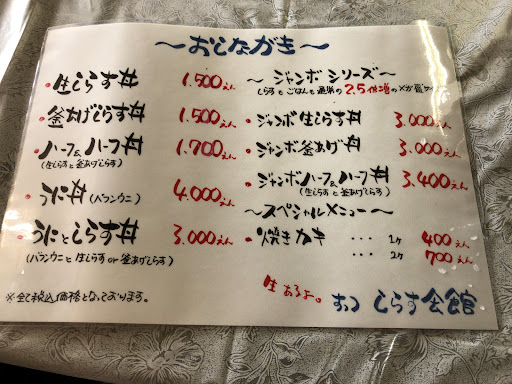 〜おしながき〜
・生しらす丼 1,500えん
・釜あげしらす丼 1,500えん
・ハーフ&ハーフ丼 1,700えん
(生しらすと釜あげしらす)
・うに丼(バフンウニ) 4,000えん
・うにとしらす丼 3,000えん
(バフンウニと生しらすor釜あげしらす)
※全て税込価格となっております。
〜ジャンボシリーズ〜
しらすもごはんも通常の2.5倍
・ジャンボ生しらす丼 3,000えん
・ジャンボ釜あげ丼 3,000えん
・ジャンボハーフ&ハーフ丼 3,400えん
(生しらすと釜あげしらす)
〜スペシャルメニュー〜
・焼きカキ ・・・ 1ケ 400えん
・・・ 2ケ 700えん
生あるよ。
しらす会館